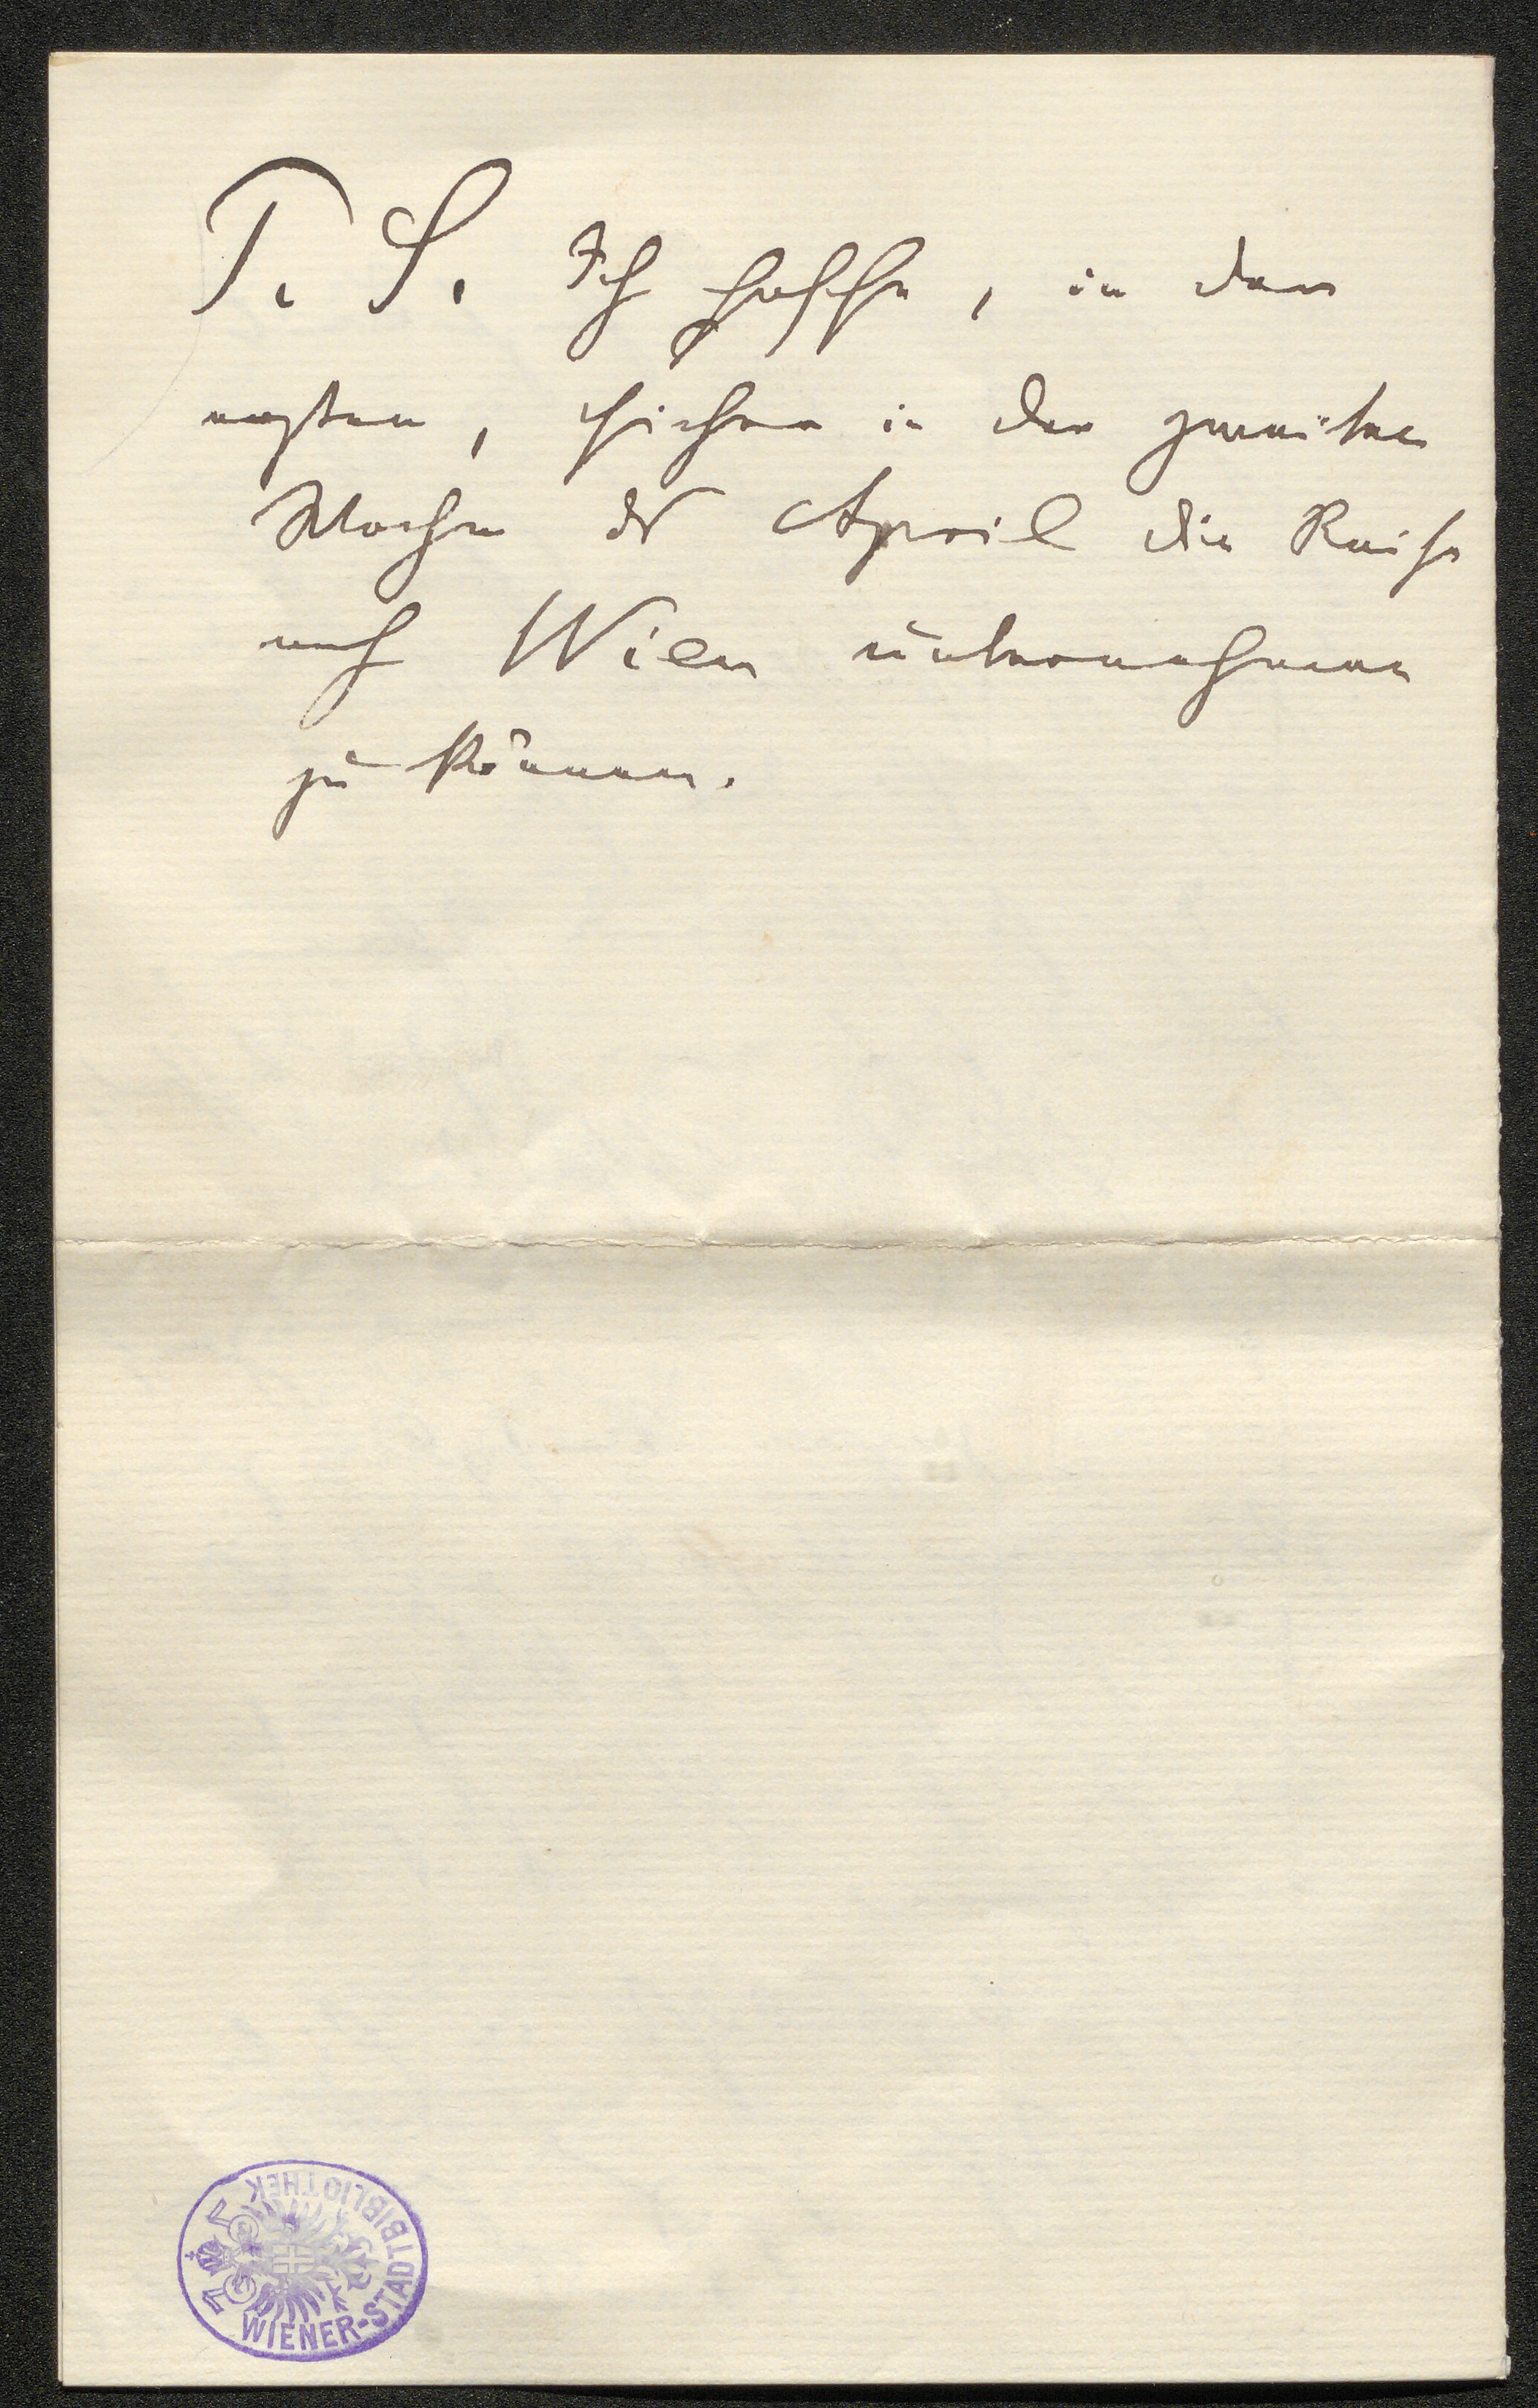 P. S. Ich hoffe, in der
ersten, sicher in der zweiten
Woche des April die Reise
nach Wien unternehmen
zu können.
WIENER-STADTBIBLIOTHEK